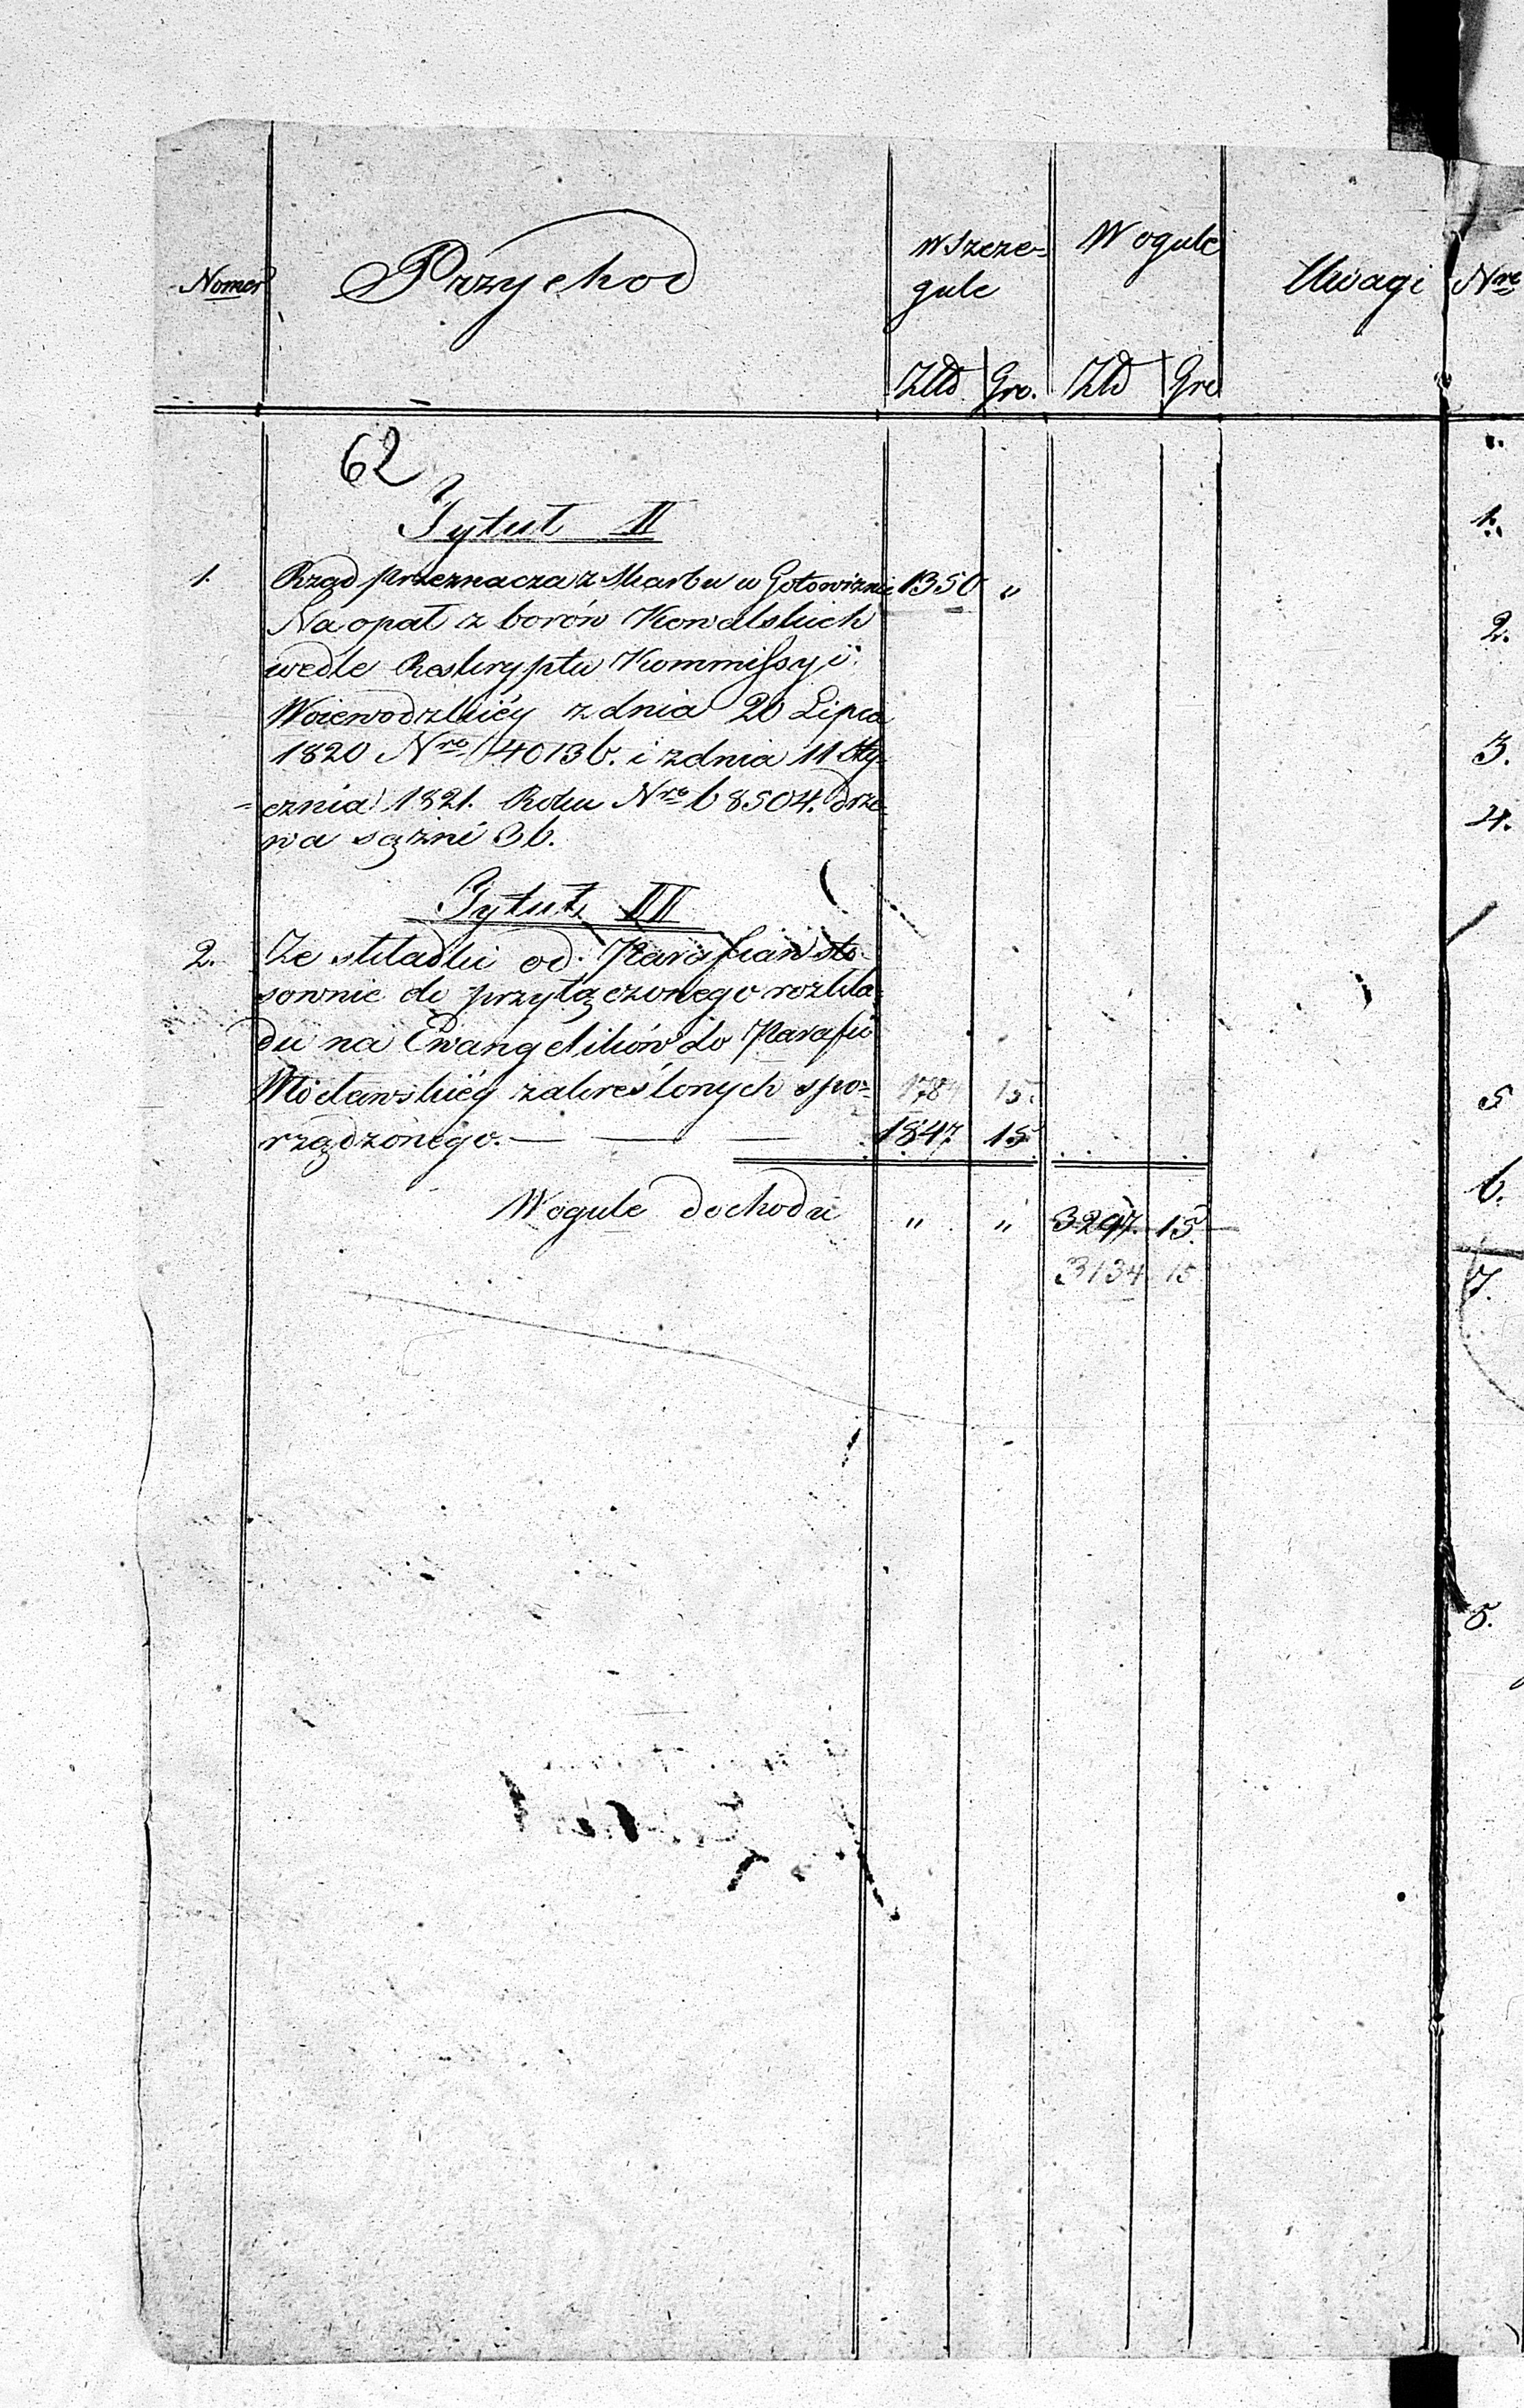 Nomer Przychod w Szcze- Wogule Uwagi Nro
gule
Złł Gro. Zł Gro
62
Tytuł II
1. Rząd przeznacza z Skarbu w Gotowiznie 1350 "
Na opał z borów Kowalskich
wedle Reskryptu Kommissyi
Woiewodzkiéy z dnia 20 Lipca
1820 Nro 40136. i z dnia 11 Sty-
cznia 1821. Roku Nro 68504. drze-
wa sążni 36.
Tytuł III
2. Ze składki od Parafian sto-
sownie do przyłączonego rozkła-
du na Ewangelików do Parafii
Włocławskiéy zakreślonych spo- 178 15.
rządzonego. — — — 1847 15
Wogule dochodu " " 3297. 15.
3134 15
1.
2.
3.
4.
5
6.
7.
8.